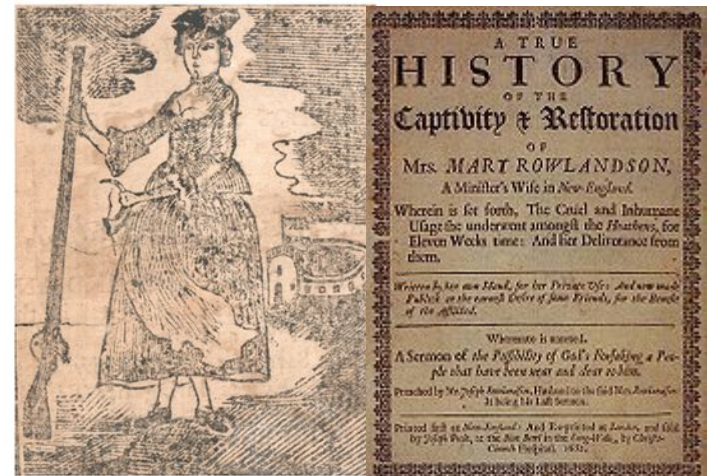 A TRUE
HISTORY
OF THE
Captivity & Restoration
OF
Mrs. MARY ROWLANDSON,
A Minister's Wife in New-England.
Wherein is set forth, The Cruel and Inhumane
Usage she underwent amongst the Heathens, for
Eleven Weeks time: And her Deliverance from
them.
Written by her own Hand, for her Private Use: And now made
Publick at the earnest Desire of some Friends, for the Benefit
of the Afflicted.
Whereunto is annexed,
A Sermon of the Possibility of God's Forsaking a Peo-
ple that have been near and dear to him.
Preached by Mr. Joseph Rowlandson, Husband to the said Mrs. Rowlandson:
It being his Last Sermon.
Printed first at New-England: And Re-printed at London, and sold
by Joseph Poole, at the Blue Bowl in the Long-Walk, by Christs-
Church Hospital. 1682.